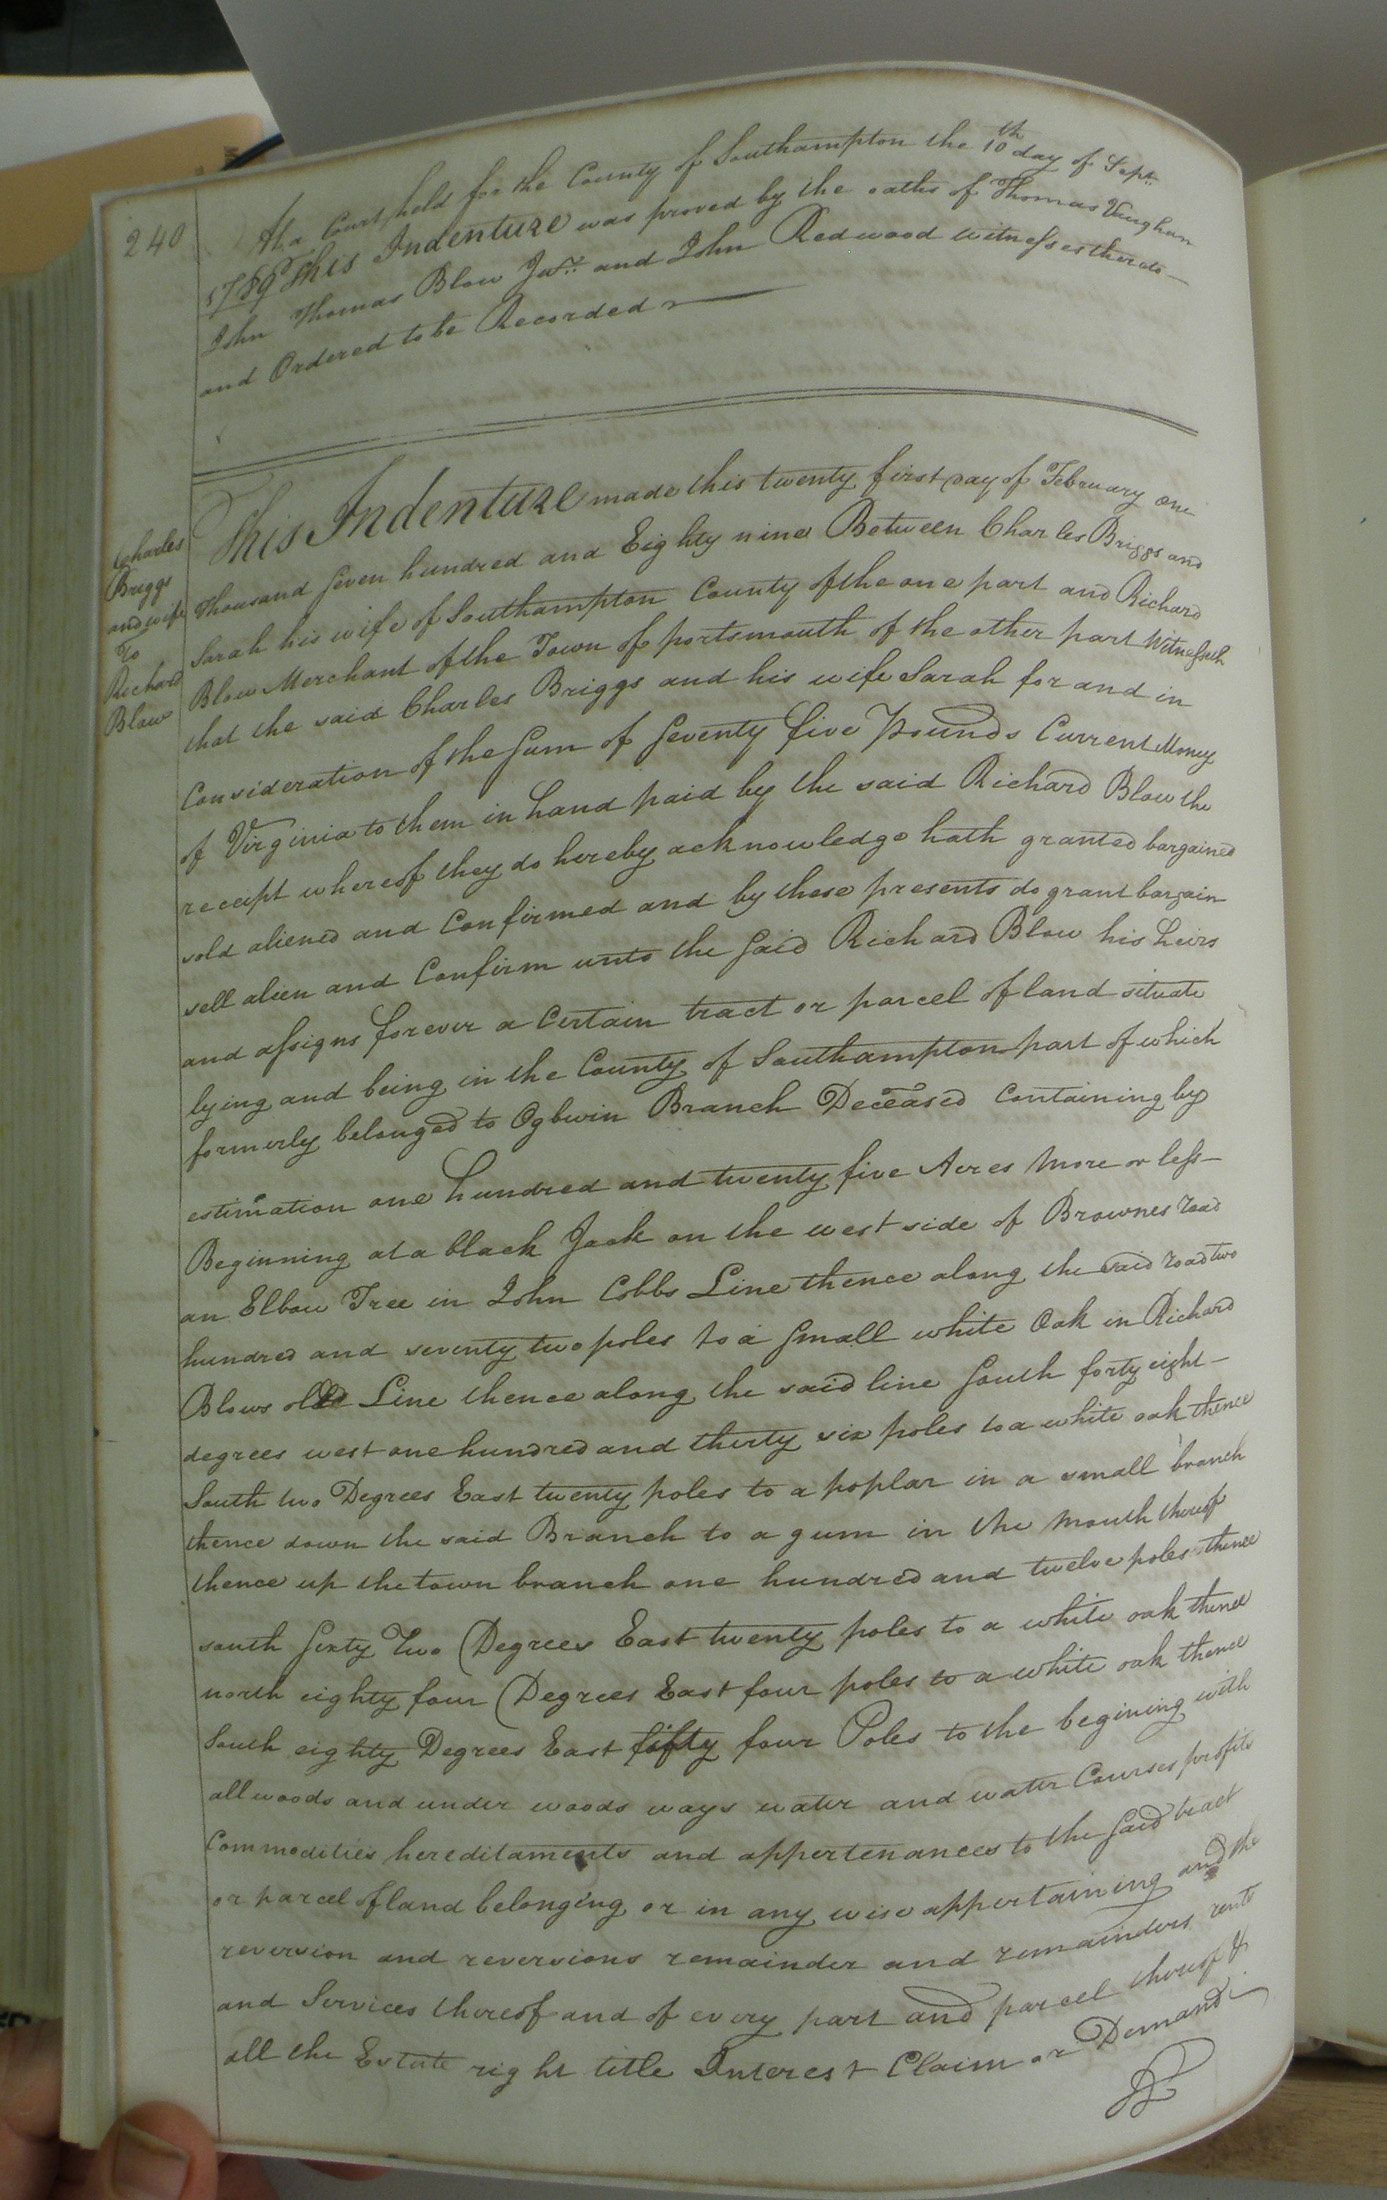 240
At a Court held for the County of Southampton the 10th day of Septr
1789 This Indenture was proved by the oaths of Thomas Vaughan
John Thomas Blow Junr and John Redwood witnesses thereto
and Ordered to be Recorded
Charles
Briggs
and wife
To
Richard
Blow
This Indenture made this twenty first day of February one
Thousand Seven hundred and Eighty nine Between Charles Briggs and
Sarah his wife of Southampton County of the one part and Richard
Blow Merchant of the Town of portsmouth of the other part Witnesseth
that the said Charles Briggs and his wife Sarah for and in
Consideration of the Sum of Seventy five Pounds Current Money
of Virginia to them in hand paid by the said Richard Blow the
receipt whereof they do hereby acknowledge hath granted bargained
sold aliened and Confirmed and by these presents do grant bargain
sell alien and Confirm unto the Said Richard Blow his heirs
and assigns forever a Certain tract or parcel of land situate
lying and being in the County of Southampton part of which
formerly belonged to Ogbwin Branch Deceased Containing by
estimation one hundred and twenty five Acres More or less
Beginning at a black Jack on the west side of Brownes road
an Elbow Tree in John Cobbs Line thence along the said road two
hundred and seventy two poles to a Small white Oak in Richard
Blows old Line thence along the said line South forty eight
degrees west one hundred and thirty six poles to a white oak thence
South two Degrees East twenty poles to a poplar in a small branch
thence down the said Branch to a gum in the Mouth thereof
thence up the town branch one hundred and twelve poles thence
south Sixty Two Degrees East twenty poles to a white oak thence
north eighty four Degrees East four poles to a white oak thence
South eighty Degrees East fifty four Poles to the begining with
all woods and under woods ways water and water Courses profits
Commodities hereditaments and appertenances to the Said tract
or parcel of land belonging or in any wise appertaining and the
reversion and reversions remainder and remainders rents
and Services thereof and of every part and parcel thereof &
all the Estate right title Interest Claim or Demand